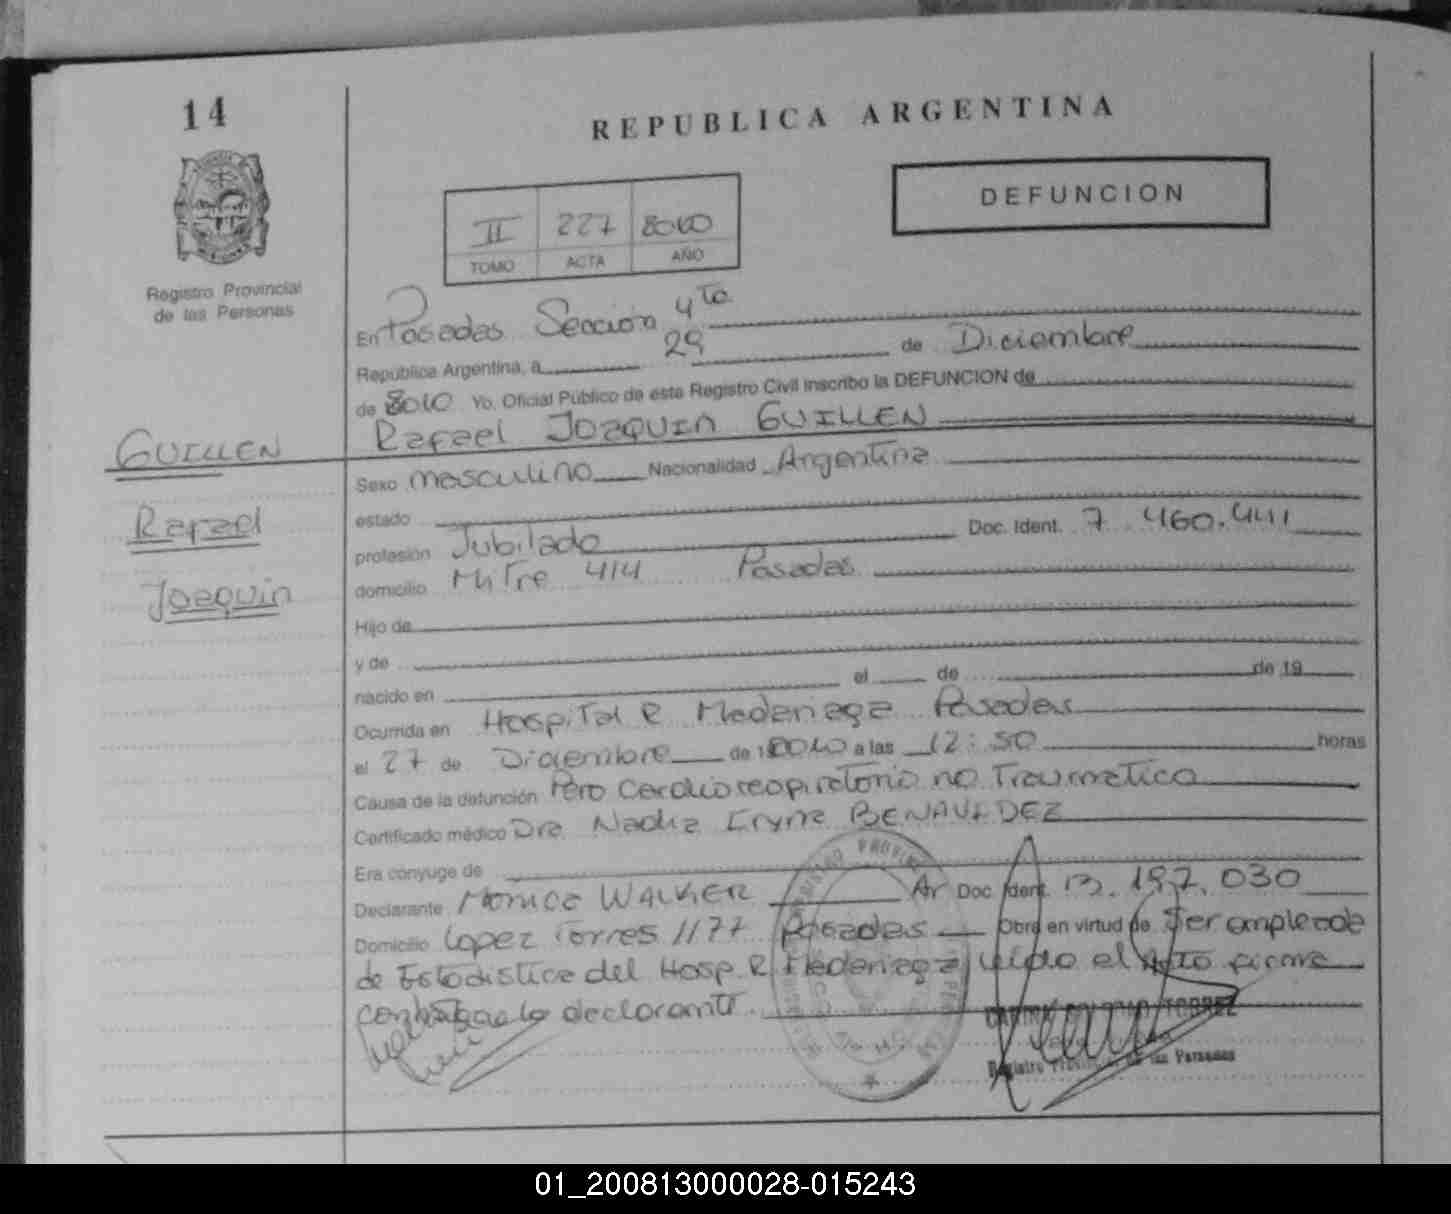 14
REPUBLICA ARGENTINA
DEFUNCION
II 227 2010
TOMO ACTA AÑO
Registro Provincial
de las Personas
En Posadas Sección 4ta
República Argentina, a 29 de Diciembre
de 2010 Yo, Oficial Público de este Registro Civil inscribo la DEFUNCION de
Rafael Joaquin GUILLEN
GUILLEN
Rafael
Joaquin
Sexo masculino Nacionalidad Argentina
estado
profesión Jubilado Doc. Ident. 7.460.441
domicilio Mitre 414 Posadas
Hijo de
y de
nacido en el de de 19
Ocurrida en Hospital R Madariaga Posadas
el 27 de Diciembre de 2010 a las 12:50 horas
Causa de la defunción Paro Cardiorespiratorio no Traumatico
Certificado médico Dra Nadia BENAVIDEZ
Era cónyuge de
Declarante Monica WALKER Ar Doc. Ident. 13.197.030
Domicilio Lopez Torres 1177 Posadas Obra en virtud de Ser empleada
de Estadistica del Hosp. R Madariaga leido el Acto firma
la declarante.
TORREZ
Registro Provincial de las Personas
01_200813000028-015243